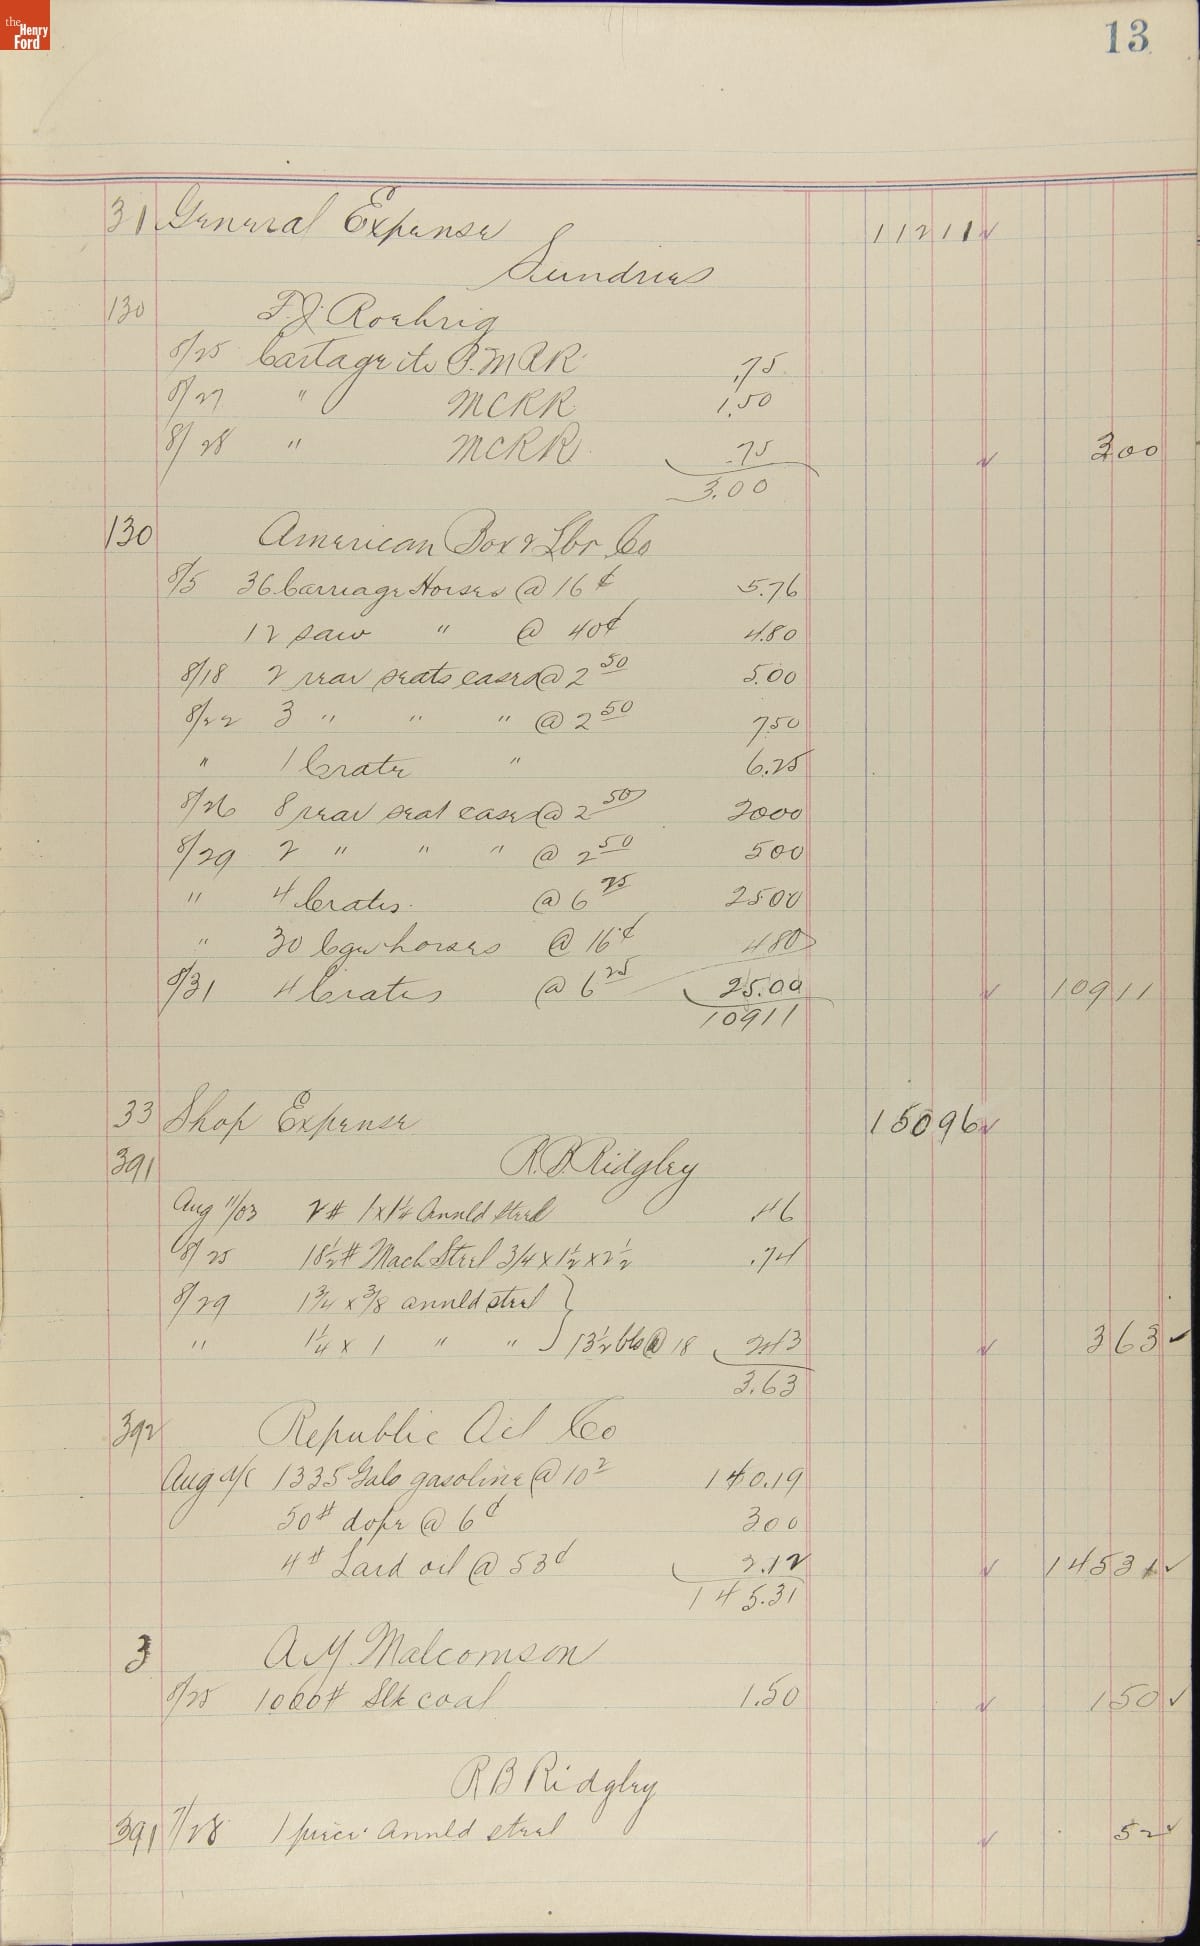 the
Henry
Ford
13
31 General Expense 11211
Sundries
130 F.J. Roehrig
8/25 Cartage to P.M.R.R. .75
8/27 " MCRR 1.50
8/28 " MCRR .75 300
3.00
130 American Box & Lbr Co
8/5 36 Carriage Horses @ 16¢ 5.76
12 saw " @ 40¢ 4.80
8/18 2 rear seats cases @ 2 50 5.00
8/22 3 " " " @ 2 50 7.50
" 1 Crate " 6.25
8/26 8 rear seat cases @ 2 50 2000
8/29 2 " " " @ 2 50 500
" 4 Crates. @ 6 25 2500
" 30 Cge horses @ 16¢ 480
8/31 4 Crates @ 6 25 25.00 10911
10911
33 Shop Expense 15096
391 R.B. Ridgley
Aug 11/03 2# 1x1¼ Annld Steel .46
8/25 18½# Mach Steel 3/4 x 1½ x 2½ .74
8/29 1¾ x ⅜ annld steel
" 1¼ x 1 " " 13½ lbs @ 18 2.43 363
3.63
392 Republic Oil Co
Aug 1335 Gals gasoline @ 10 2 140.19
50# dope @ 6¢ 300
4# Lard oil @ 53¢ 2.12 14531
145.31
3 A.Y. Malcomson
8/25 1000# Slk coal 1.50 150
R B Ridgley
391 7/28 1 piece annld steel 52